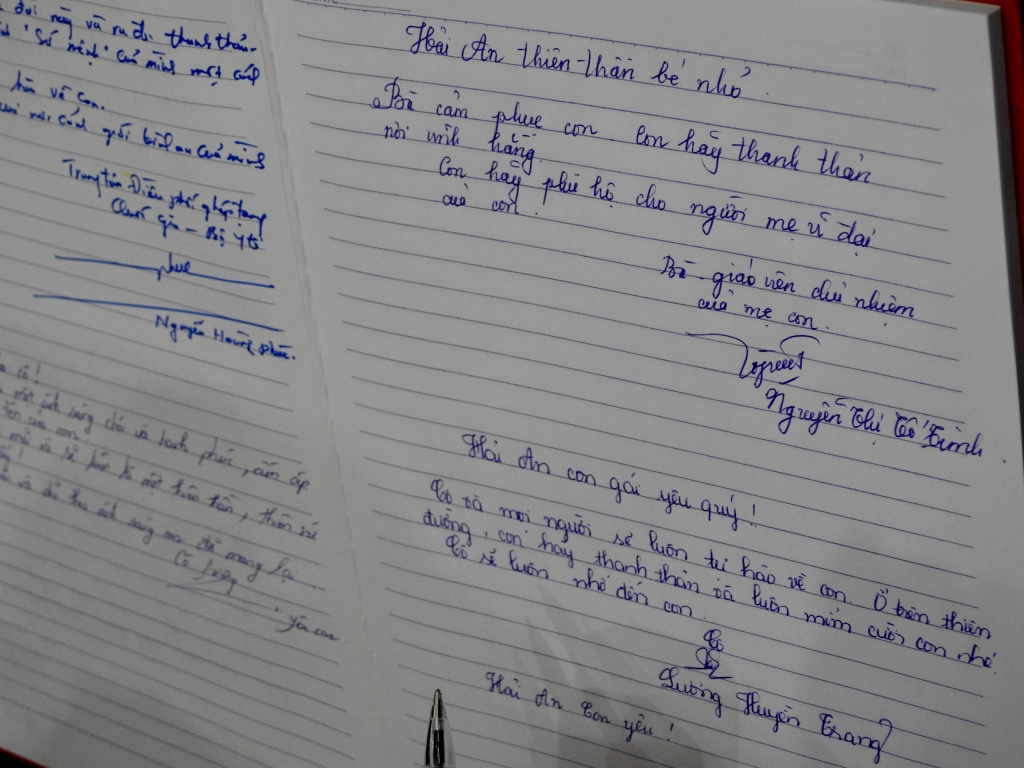 đời này và ra đi thanh thản.
"Sứ mệnh" của mình một cách
hôn về con.
gửi bình an của mình
Trung tâm Điều phối ghép tạng
Quốc gia - Bộ Y tế
phuc
Nguyễn Hoàng Phúc.
một ánh sáng chói và hạnh phúc, ấm áp
của con
một thiên thần, thiên sứ
ánh sáng mà đã mang lại
yêu con
Hải An thiên thần bé nhỏ.
Bà cảm phục con. Con hãy thanh thản
nơi vĩnh hằng.
Con hãy phù hộ cho người mẹ vĩ đại
của con.
Bà giáo viên chủ nhiệm
của mẹ con.
Nguyễn Thị Tố Trinh
Hải An con gái yêu quý!
Cô và mọi người sẽ luôn tự hào về con. Ở trên thiên
đường, con hãy thanh thản và luôn mỉm cười con nhé.
Cô sẽ luôn nhớ đến con.
Cô
Lương Huyền Trang
Hải An con yêu!